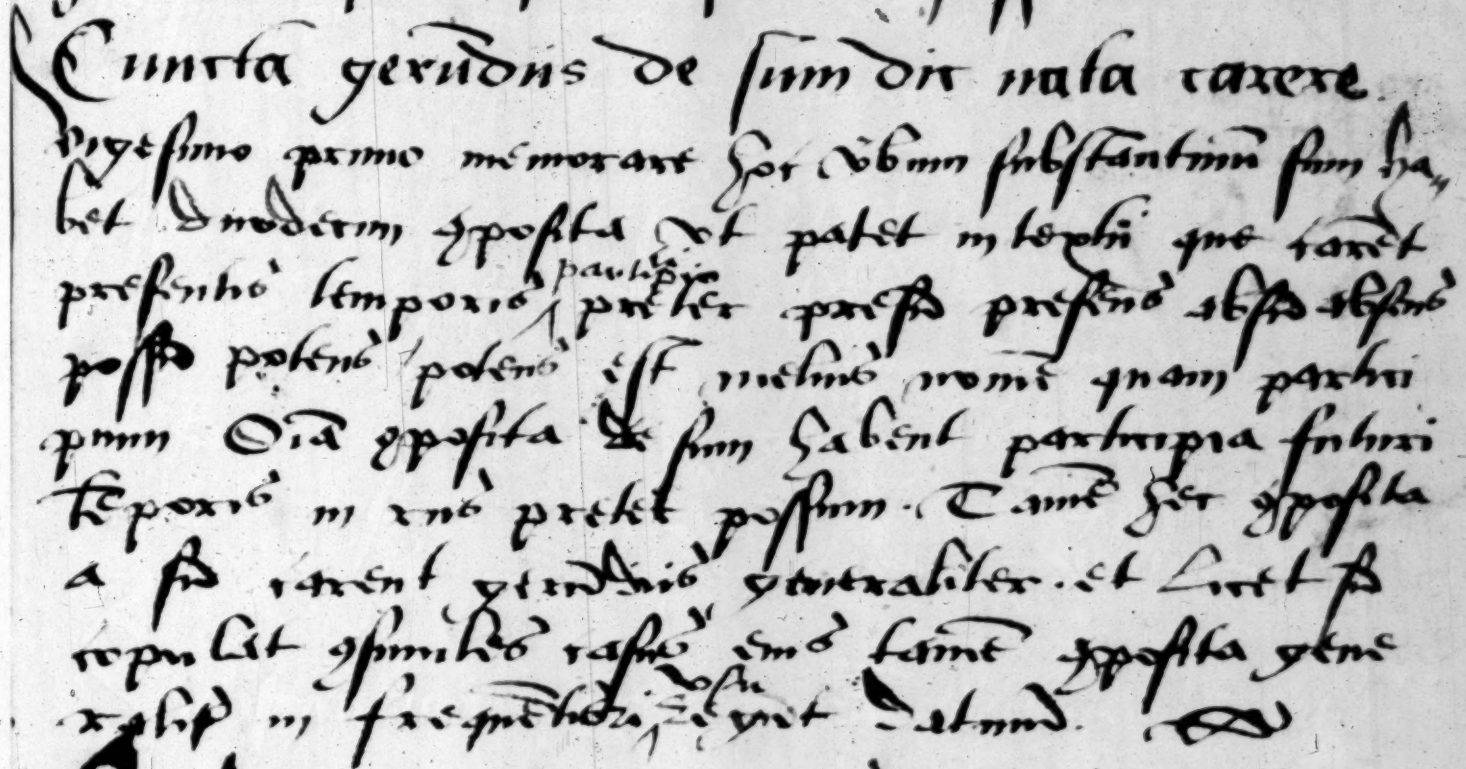 Cuncta gerūdiis de sum dic nata carere
vigesimo primo memorare hoc v̄bum substantiuū sum ha„
bet duodecim ꝯposita vt patet in textu que carēt
presentis temporis participio preter presū presens absū absens
possū potens potens est melius nomē quam partici
pium Oīa ꝯposita de sum habent participia futuri
tēporis in rus preter possum. Tamē hec ꝯposita
a sū carent gerūdiis generaliter. et licet sū
copulat ꝯsimiles casus eius tamē ꝯposita gene
ralit̄ in frequētiori vsu regūt datiuū.